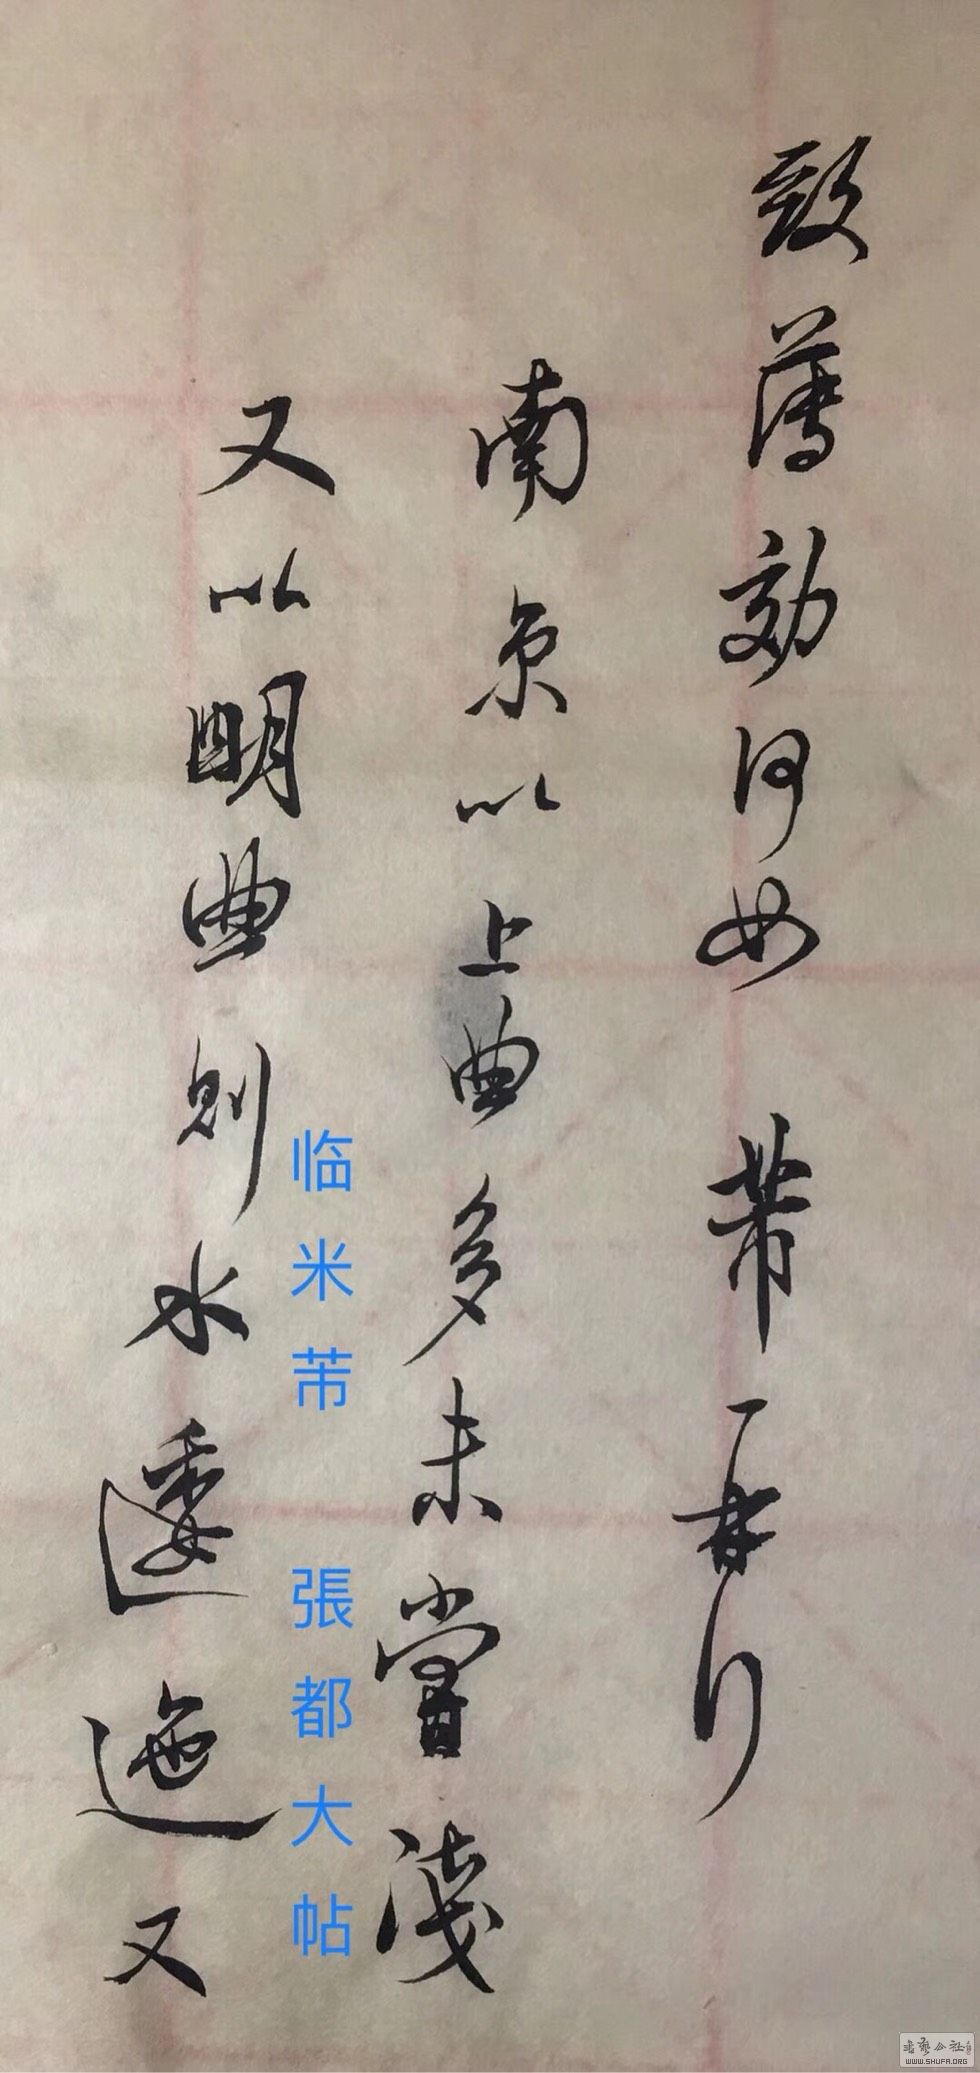 致薄効何如 芾再行
南京以上曲多未嘗淺
又以明曲則水逶迤又
临米芾 張都大帖
書藝公社
WWW.SHUFA.ORG